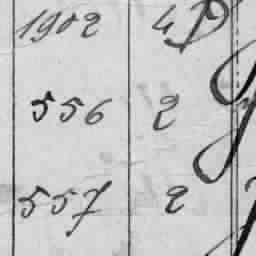 1902 4
556 2
557 2